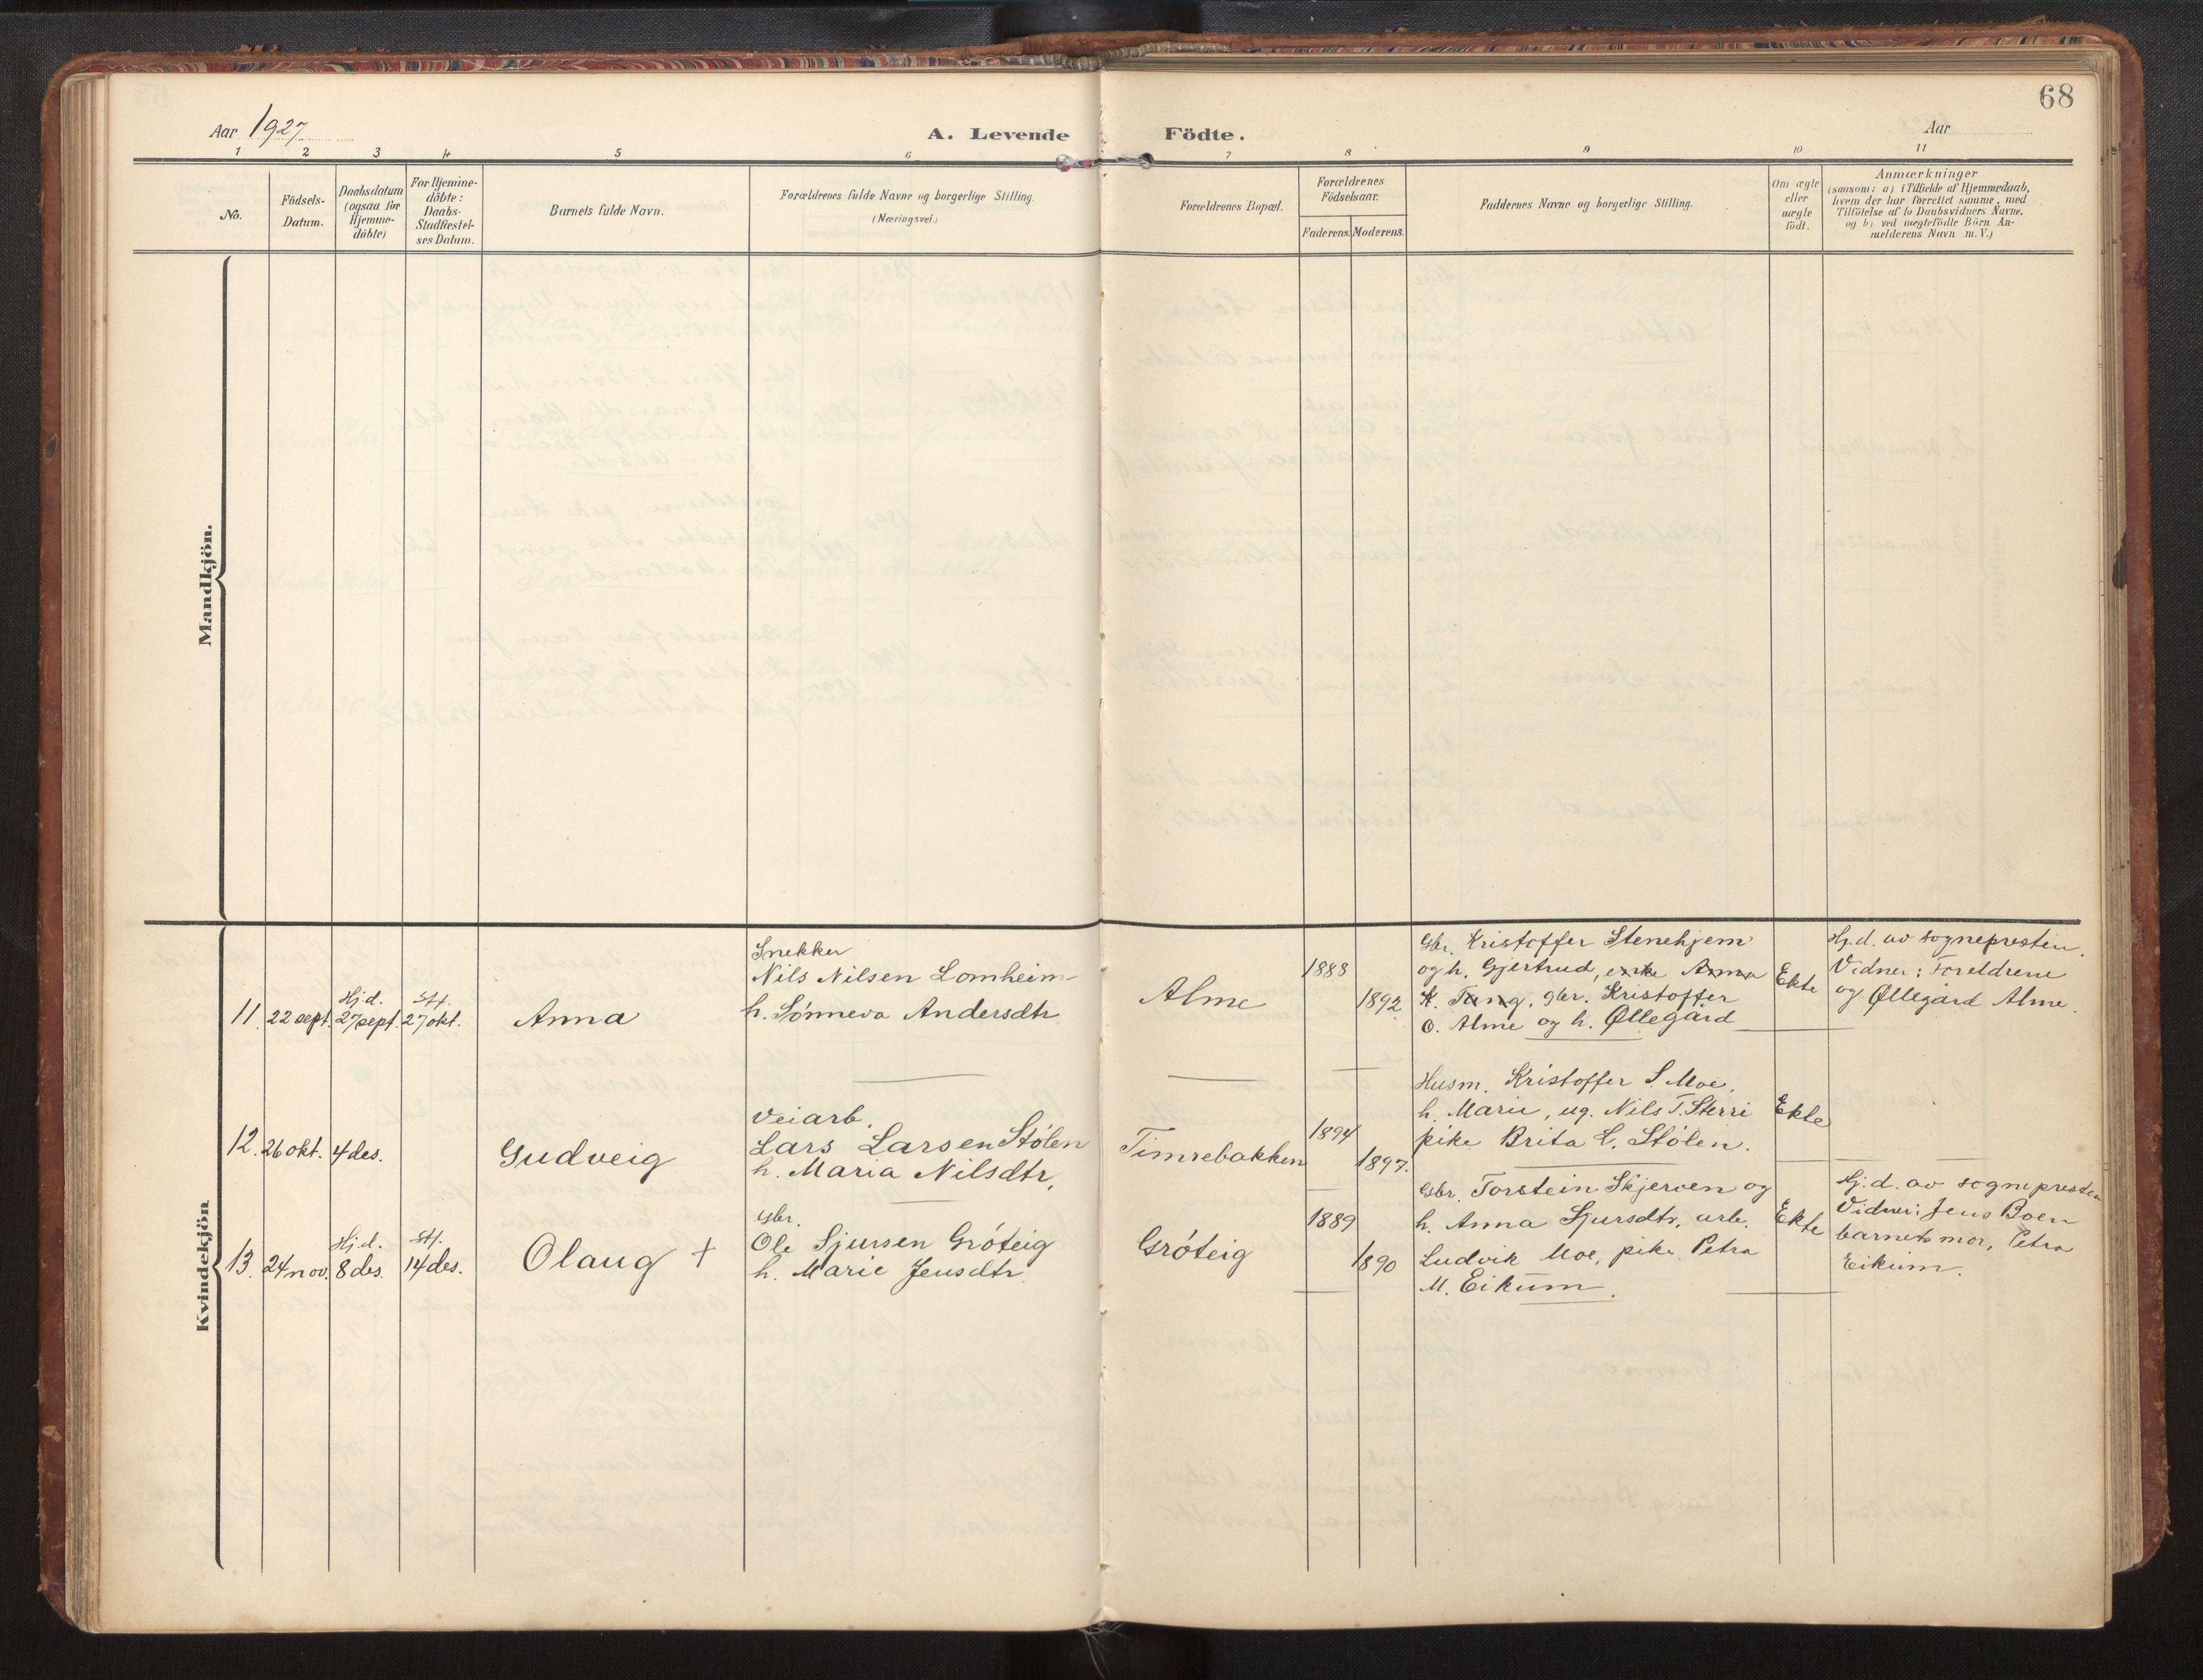 68
Aar 1927
A. Levende Födte.
Aar
1 2 3 4 5 6 7 8 9 10 11
No.
Födsels-
Datum.
Daabsdatum
(ogsaa for
Hjemme-
döbte)
For Hjemme-
döbte:
Daabs-
Stadfæstel-
ses Datum.
Barnets fulde Navn.
Forældrenes fulde Navne og borgerlige Stilling.
(Næringsvei.)
Forældrenes Bopæl.
Forældrenes
Födselsaar.
Faderens. Moderens.
Faddernes Navne og borgerlige Stilling.
Om ægte
eller
uægte
födt.
Anmærkninger
(saasom: a) i Tilfælde af Hjemmedaab,
hvem der har forrettet samme, med
Tilföielse af to Daabsvidners Navne.
og b) ved uægtefödte Börn An-
melderens Navn m. V.)
Mandkjön.
Kvindekjön
11. 22 sept.
Hj.d.
27 sept.
St.
27 okt.
Anna
Snekker
Nils Nilsen Lomheim
h. Sønneva Andersdtr
Alme
1888
1892
Gbr. Kristoffer Stenehjem
og h. Gjertrud, enke Anna
K. Tang, gbr. Kristoffer
O. Alme og h. Øllegård
Ekte
Hj.d. av sognepresten.
Vidner: Foreldrene
og Øllegård Alme.
12. 26 okt. 4 des.
Gudveig
Veiarb.
Lars Larsen Stølen
h. Maria Nilsdtr.
Timrebakken
1894
1897.
Husm. Kristoffer S. Moe,
h. Marie, ug. Nils T. Sterri
pike Brita L. Stølen.
Ekte
13. 24 nov.
Hj.d.
8 des.
St.
14 des.
Olaug +
Gbr.
Ole Sjursen Grøteig
h. Marie Jensdtr
Grøteig
1889
1890
Gbr. Torstein Skjerven og
h. Anna Sjursdtr, arb.
Ludvik Moe, pike Petra
M. Eikum.
Ekte
Hj.d. av sognepresten
Vidner: Jens Boen
barnets mor, Petra
Eikum.